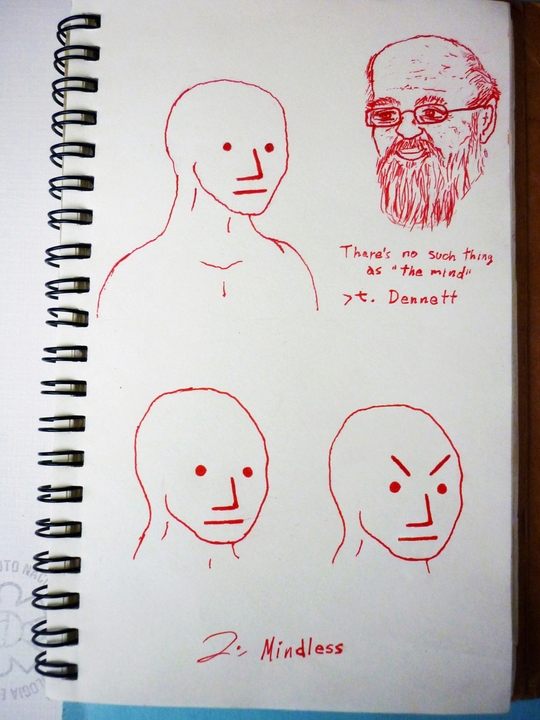 There's no such thing
as "the mind"
>t. Dennett
2: Mindless